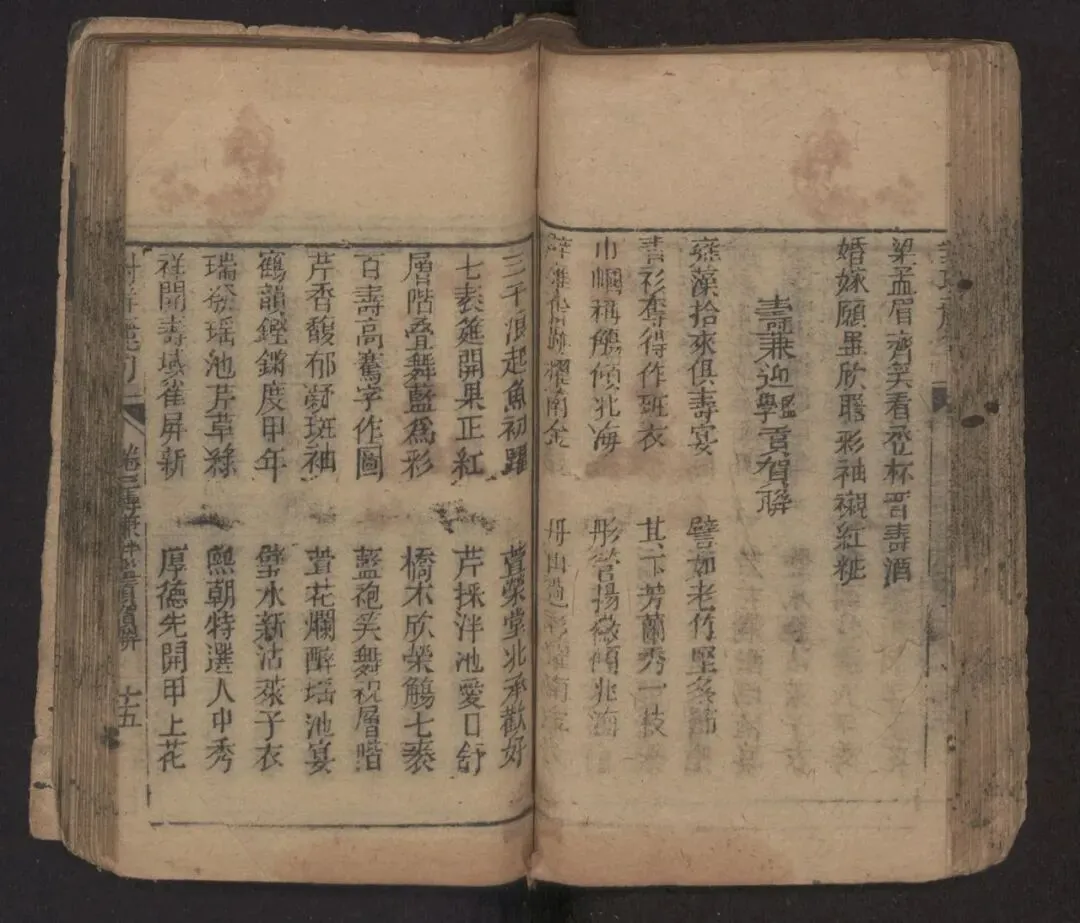 梁孟眉齊笑看霞杯晋壽酒
婚嫁願畢欣聽彩袖襯紅粧
壽兼迎學貢賀聯
藻拾來俱壽宴 譬如老竹堅冬節
青衫奪得作班衣 其下芳蘭秀一枝
巾幗稱觴傾北海 彤管揚徽
耀南金 丹山
三千浪起魚初躍 萱榮堂北承歡好
七袠筵開果正紅 芹採泮池愛日舒
層階叠舞藍爲彩 橋木欣榮觴七袠
百壽高騫字作圖 藍袍笑舞祝層階
芹香馥郁凝斑袖 萱花爛醉瑶池宴
鶴韻鏗鏘度甲年 璧水新沽萊子衣
瑞發瑶池芹草綠 熙朝特選人中秀
祥開壽域雀屏新 厚德先開甲上花
卷三壽兼 賀聯 十五